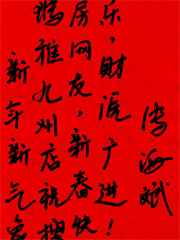 新年新气象
雅九州店祝搜
房网友，新春快
乐，财源广进！
海斌